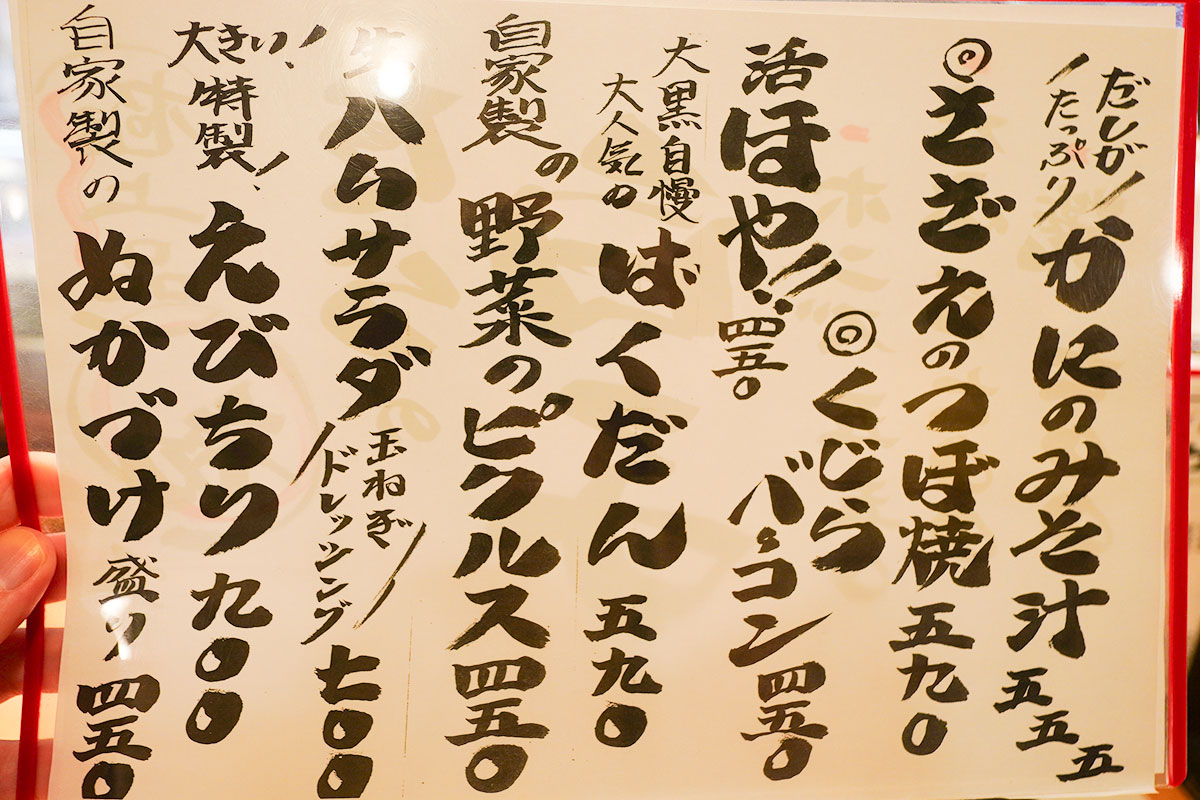 だしが
たっぷり
かにのみそ汁 五五五
◎さざえのつぼ焼 五九〇
◎くじら
ベーコン 四五〇
活ほや!! 四五〇
大黒自慢
大人気の
ばくだん 五九〇
自家製の野菜のピクルス 四五〇
生ハムサラダ
玉ねぎ
ドレッシング
七〇〇
大きい、特製、えびちり 九〇〇
自家製のぬかづけ盛り 四五〇